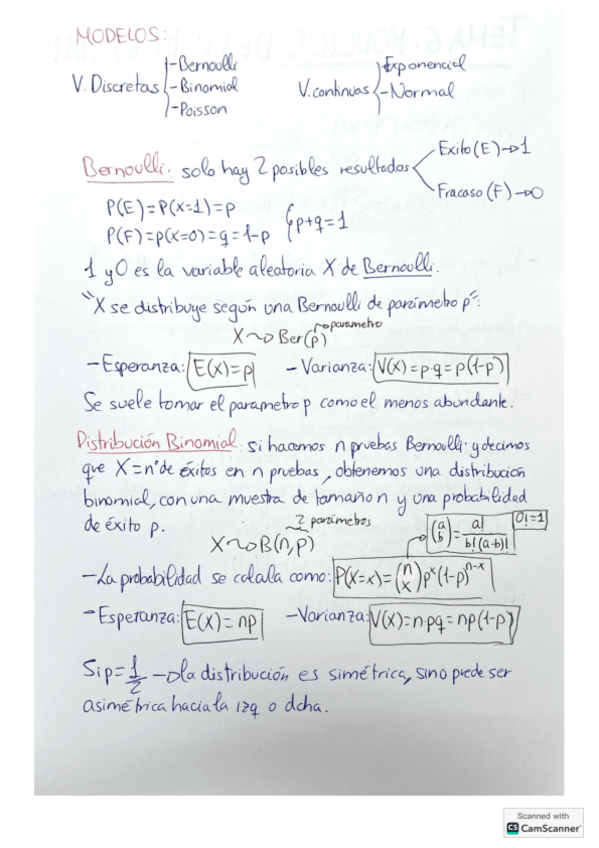 MODELOS:
V. Discretas { -Bernoulli -Binomial -Poisson
V. continuas { -Exponencial -Normal
Bernoulli: solo hay 2 posibles resultados < Exito (E) → 1
Fracaso (F) → 0
P(E)=P(X=1)=p
P(F)=p(X=0)=q=1-p } p+q=1
1 y 0 es la variable aleatoria X de Bernoulli.
"X se distribuye según una Bernoulli de parámetro p":
X ~> Ber(p) → parametro
-Esperanza: E(X)=p -Varianza: V(X)=p·q=p(1-p)
Se suele tomar el parametro p como el menos abundante.
Distribución Binomial: si hacemos n pruebas Bernoulli y decimos
que X=nº de éxitos en n pruebas, obtenemos una distribución
binomial, con una muestra de tamaño n y una probabilidad
de éxito p.
X ~> B(n,p) 2 parámetros
(a b) = a! / b!(a-b)! 0!=1
-La probabilidad se calcula como: P(X=x)=(n x) p^x (1-p)^n-x
-Esperanza: E(X)=np -Varianza: V(X)=n·pq=np(1-p)
Si p=1/2 → la distribución es simétrica, sino puede ser
asimétrica hacia la izq o dcha.
Scanned with
CS CamScanner